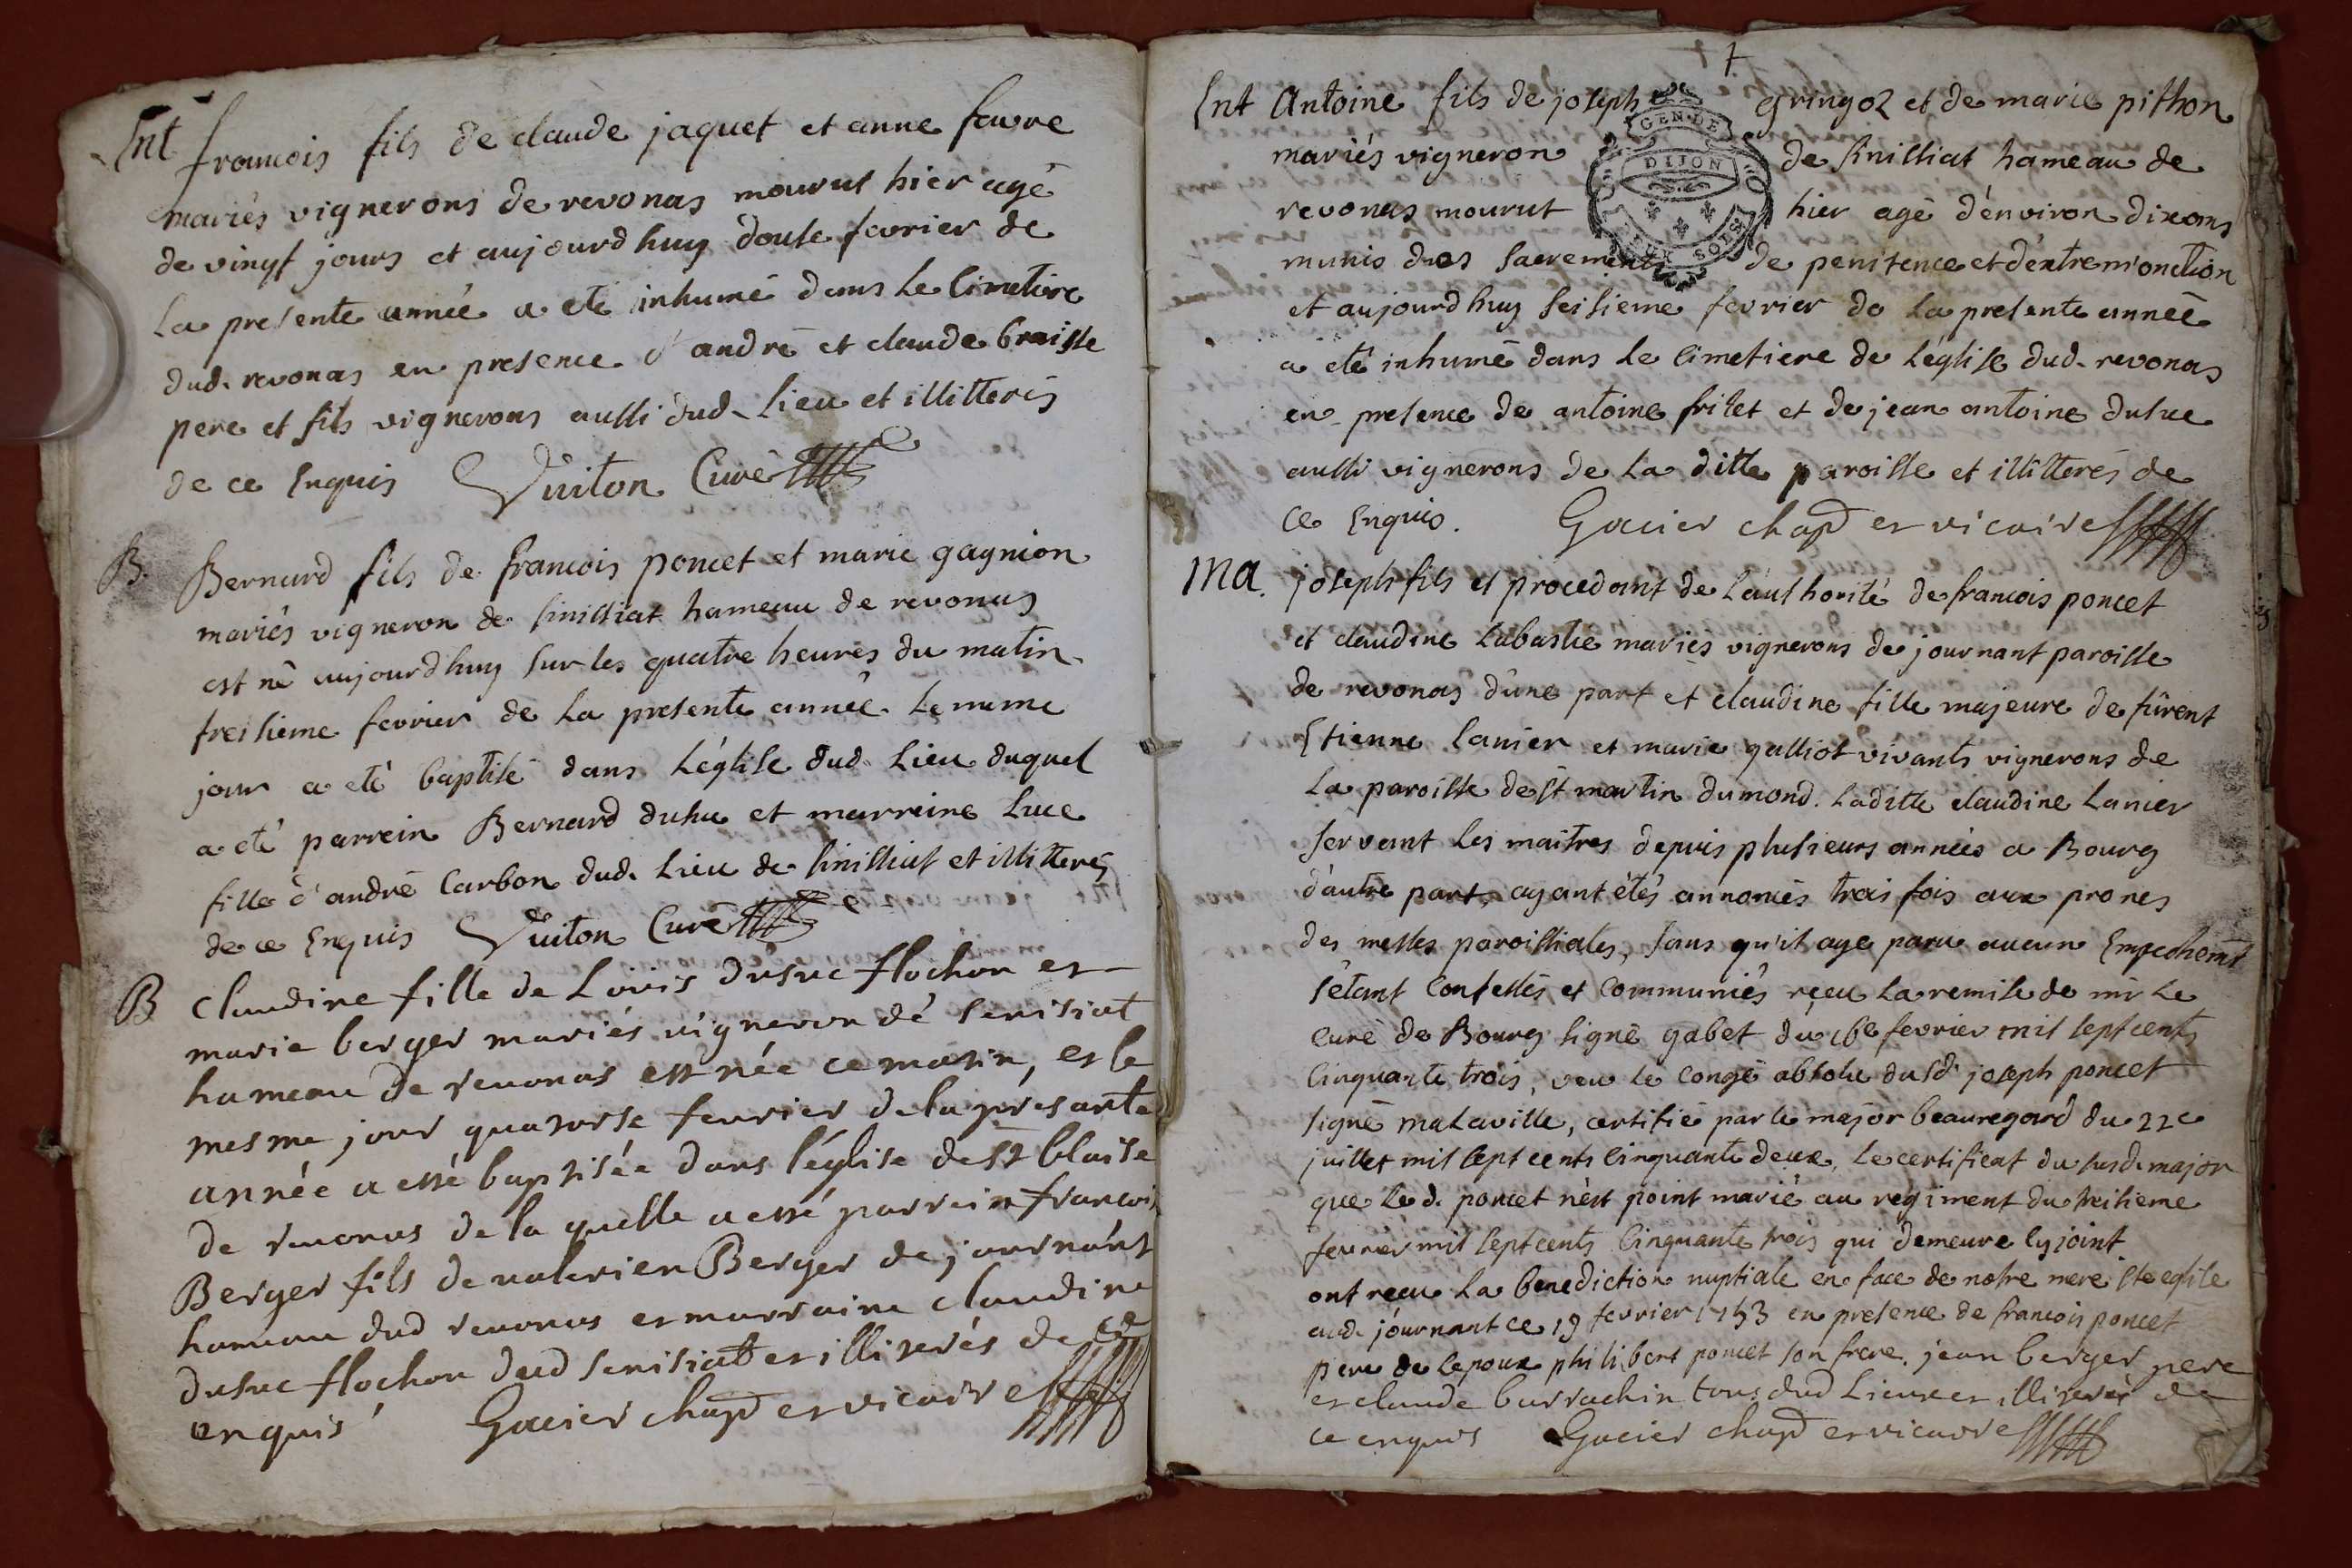 Ent francois fils de claude jaquet et anne favre
mariés vignerons de revonas mourut hier agé
de vingt jours et aujourd huy douse fevrier de
la presente année a eté inhumé dans le Cimetiere
dud. revonas en presence d'andré et claude braisse
pere et fils vignerons aussi dud. lieu et illitterés
de ce Enquis Vuiton Curé
B. Bernard fils de francois poncet et marie gagnion
mariés vigneron de sinissiat hameau de revonas
est né aujourd huy sur les quatre heures du matin
treisieme fevrier de la presente année le meme
jour a eté baptisé dans l'église dud. lieu duquel
a eté parrein Bernard dusuc et marreine luce
fille d'andré Carbon dud. lieu de sinissiat et illitterés
de ce Enquis Vuiton Curé
B Claudine fille de Louis dusuc flochon et
marie berger mariés vigneron dé senisiat
hameau de revonas est née ce matin, et le
mesme jour quatorse fevrier de la présante
année a esté baptisée dans l'église de st blaise
de revonas de la quelle a esté parrein francois
Berger fils de valerien Berger de journant
hameau dud revonas et marraine claudine
dusuc flochon dud senisiat et illiterés de ce
enquis Gacier chap et vicaire
Ent Antoine fils de joseph gringoz et de marie pithon
mariés vigneron de sinissiat hameau de
revonas mourut hier agé d'environ dix ans
munis des sacrements de penitence et d'extrem'onction
GEN. DE
DIJON
DEUX SOLS
et aujourd huy seisieme fevrier de la presente année
a eté inhumé dans le cimetiere de l'église dud. revonas
en presence de antoine frilet et de jean antoine dusuc
aussi vignerons de la ditte paroisse et illitterés de
ce Enquis. Gacier chap et vicaire
Ma. joseph fils et procedant de l'authorité de francois poncet
et claudine labastie mariés vignerons de journant paroisse
de revonas d'une part et claudine fille majeure de fûrent
Etienne lanier et marie galliot vivants vignerons de
la paroisse de st martin dumond. laditte claudine lanier
servant les maitres depuis plusieurs années a Bourg
d'autre part, ayant étés annoncés trois fois aux prones
des messes paroissiales, sans qu'il aye paru aucun Empechemt
s'étant confessés et communiés reçeu la remise de mr le
curé de Bourg signé gabet du 16e fevrier mil sept cents
Cinquante trois, veu le congé absolu dusd. joseph poncet
signé malaville, certifié par le major beauregard du 22e
juillet mil sept cents Cinquante deux, le certificat du susd. major
que led. poncet n'est point marié au regiment du treisieme
fevrier mil sept cents Cinquante trois qui demeure cy joint
ont recu la benediction nuptiale en face de notre mere ste eglise
aud. journant ce 19 fevrier 1753 en presence de francois poncet
pere de lepoux philibert poncet son frere, jean berger pere
et claude burrachin tous dud lieux et illiterés de
ce enquis Gacier chap et vicaire